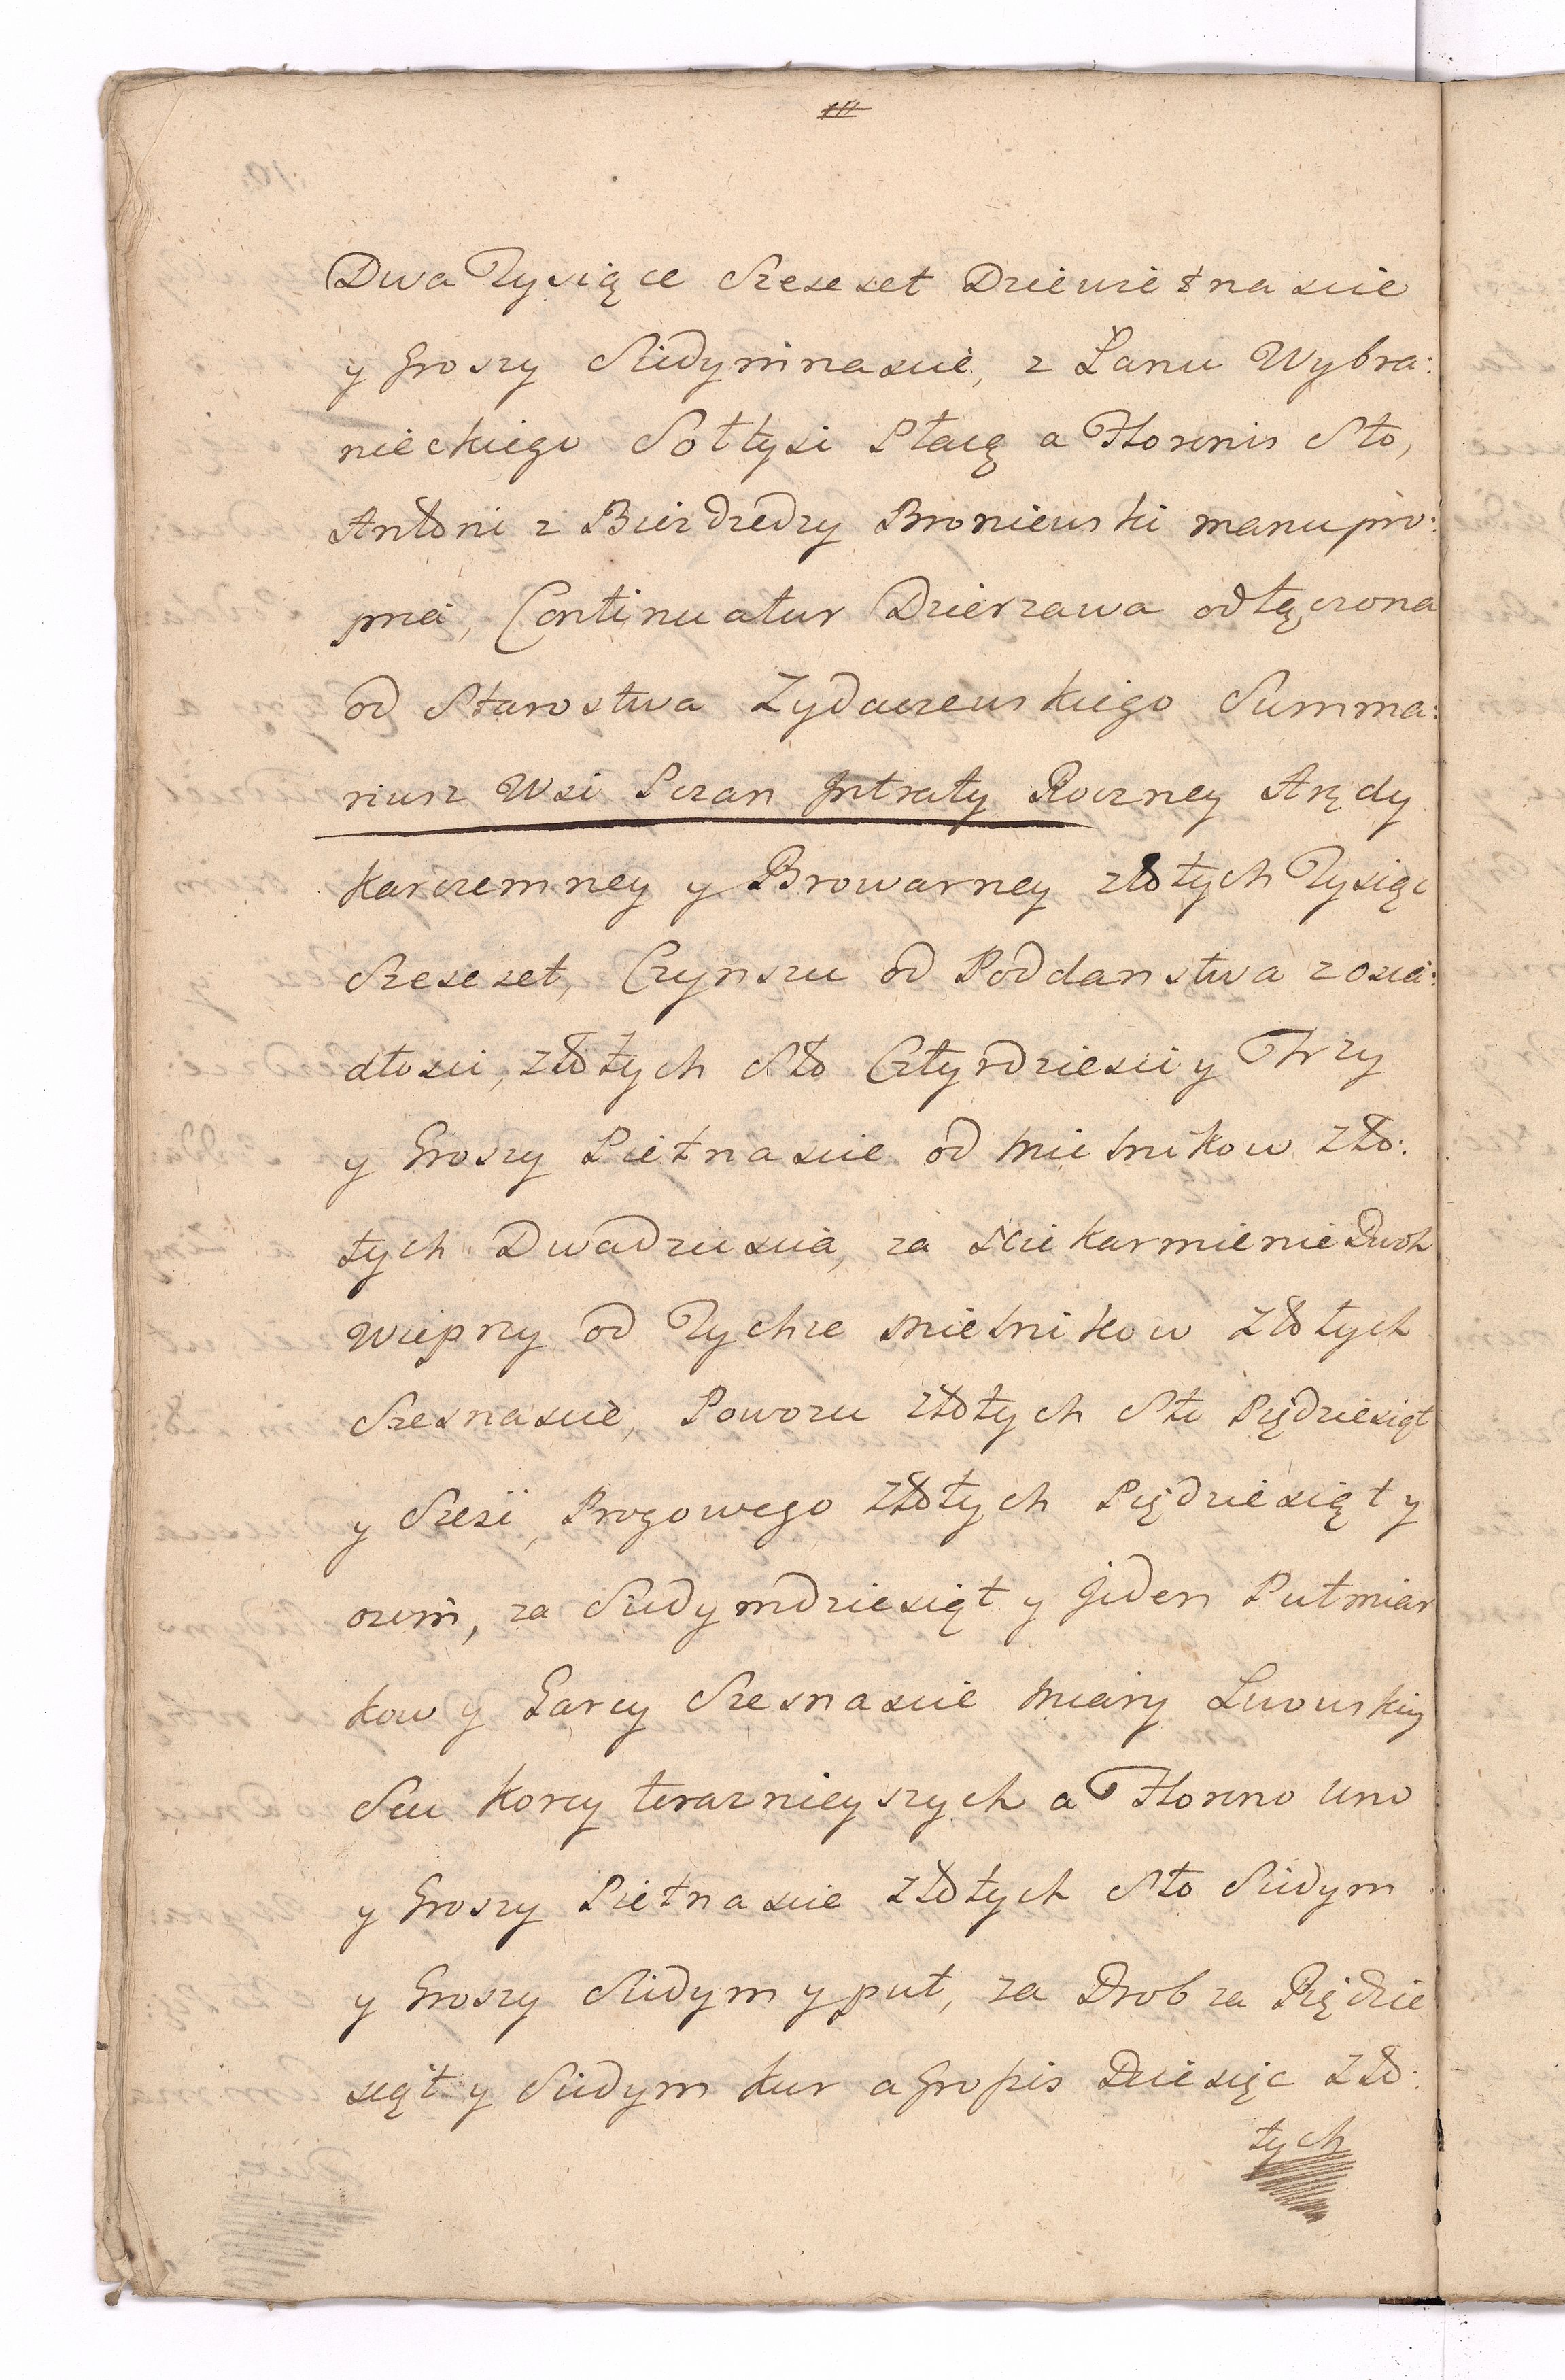 Dwa Tysiące Szesset Dziewietnascie
y Groszy Siedymnascie, z Łanu Wybra:
nieckiego Sołtysi Płacą a Florenis Sto,
Antoni z Bierdzedzy Broniewski manu pro:
pria, Continuatur Dzierzawa odłączona
od Starostwa Zydaczewskiego Summa:
riusz Wsi Pczan Intraty Roczney Arędy
karczemney y Browarney złotych Tysiąc
Szesset, Czynszu od Poddanstwa z osia:
dłosci, złotych Sto Cztyrdziesci y Trzy
y Groszy Pietnascie od Mielnikow zło:
tych Dwadziescia, za Wykarmienie Dwoh
Wieprzy od Tychze Mielnikow złotych
Szesnascie, Powozu złotych Sto Piędziesiąt
y Szesć, Rogowego złotych Piędziesiąt y
ozm, za Siedymdziesiąt y Jeden Pułmiar
kow y Garcy Szesnascie Miary Lwowskiy
Seu Korcy teraznieyszych a Floreno uno
y Groszy Pietnascie złotych Sto Siedym
y Groszy Siedym y puł, za Drob za Piędzie
siąt y Siedym Kur a Grossis Dziesięc zło:
tych